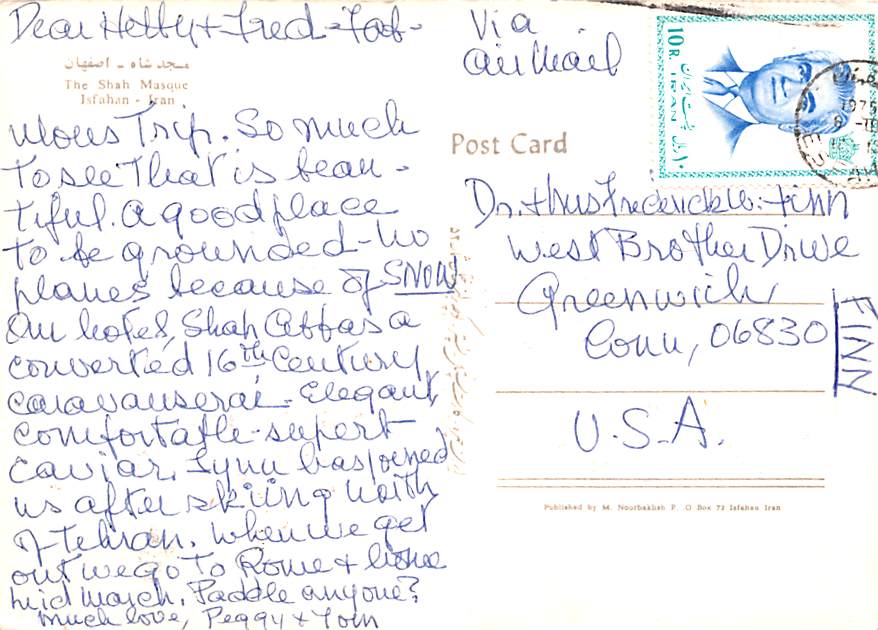 Dear Hetty + Fred - Fab-
مسجد شاه - اصفهان
The Shah Masque
Isfahan - Iran
ulous Trip. So much
To see That is beau-
tiful. A good place
To be grounded - no
planes because of SNOW
Our hotel, Shah Abbas a
converted 16th Century
caravanserai - Elegant,
comfortable - superb
caviar. Lynn has joined
us after skiing north
of Tehran. When we get
out we go To Rome + home
mid march. Paddle anyone?
much love, Peggy + Tom
Via
air Mail
Post Card
10 R.
IRAN
1975
Dr. + Mrs Frederick W. Finn
West Brother Drive
Greenwich
Conn, 06830
FINN
U.S.A.
Published by M. Noorbakhsh P. O Box 72 Isfahan Iran